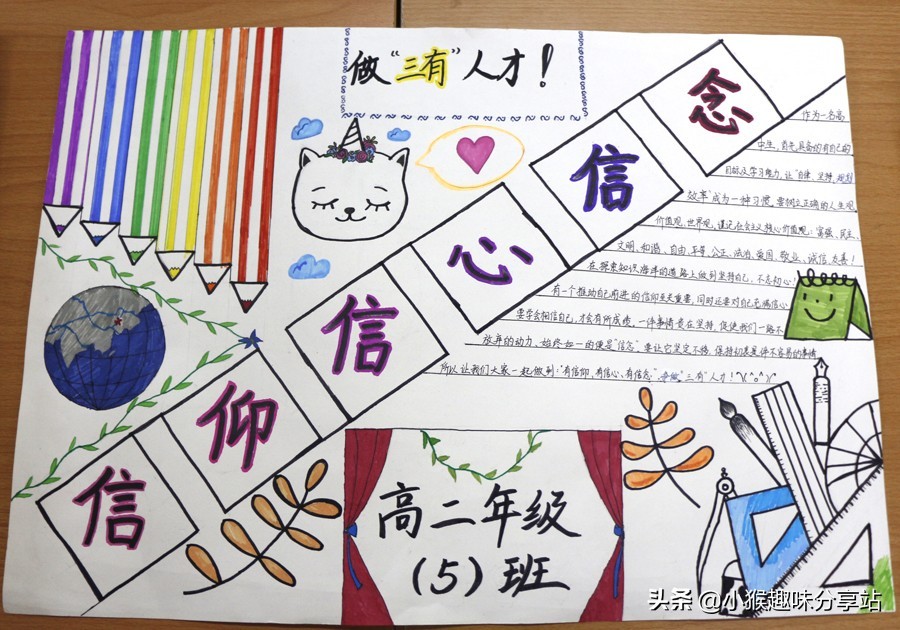 做“三有”人才！
信仰信心信念
作为一名高
中生，首先具备的有自己的
目标及学习能力，让“自律、坚持、规划
效率”成为一种习惯。要树立正确的人生观
价值观，世界观，谨记社会主义核心价值观：富强、民主、
文明、和谐、自由、平等、公正、法治、爱国、敬业、诚信、友善！
在探索知识海洋的道路上做到坚持自己，不忘初心！
有一个推动自己前进的信仰至关重要，同时还要对自己充满信心
要学会相信自己，才会有所成绩。一件事情贵在坚持，促使我们一路不
放弃的动力，始终如一的便是“信念”，要让它坚定不移，保持初衷是件不容易的事情
所以让我们大家一起做到：“有信仰，有信心，有信念”，争做“三有”人才！
高二年级
（5）班
头条 @小猴趣味分享站